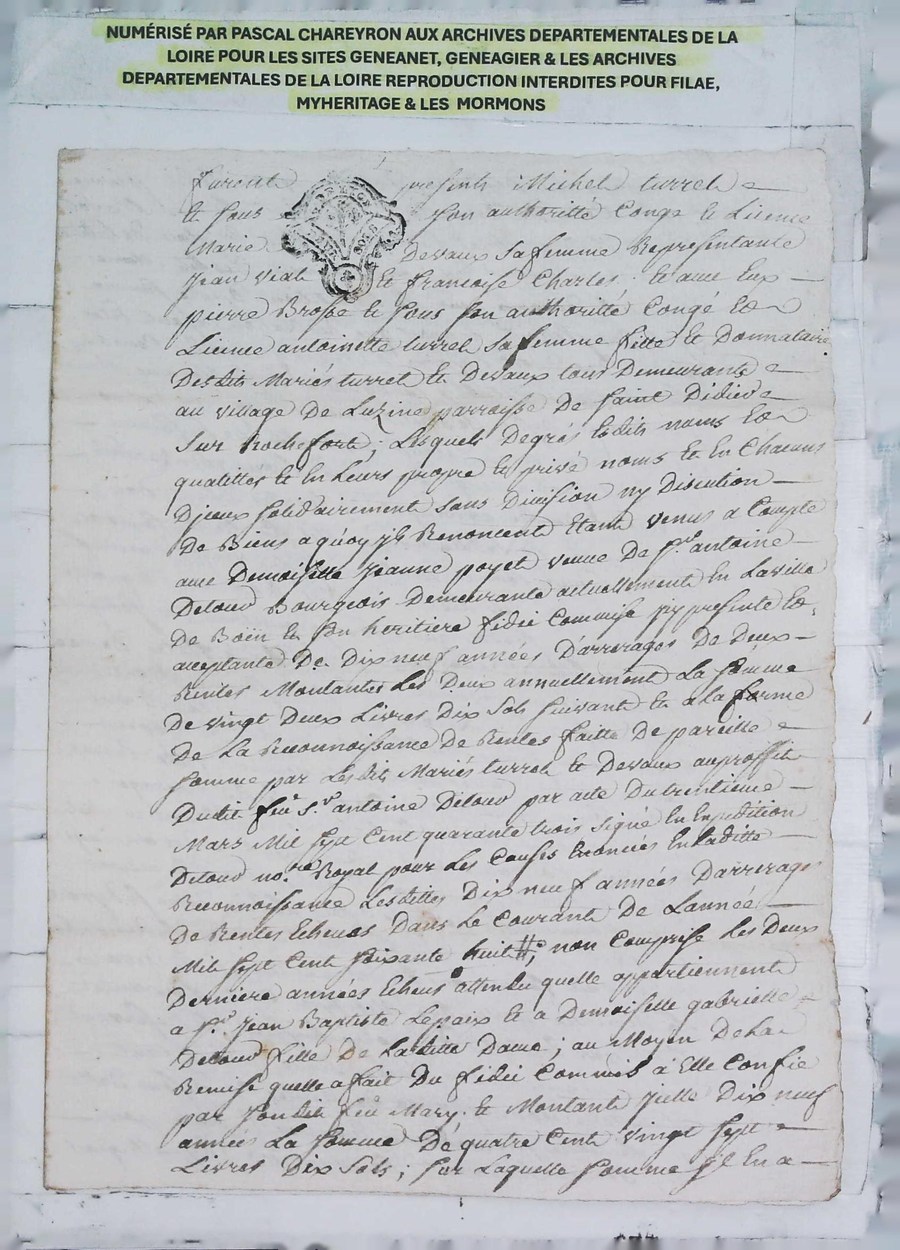 NUMÉRISÉ PAR PASCAL CHAREYRON AUX ARCHIVES DEPARTEMENTALES DE LA
LOIRE POUR LES SITES GENEANET, GENEAGIER & LES ARCHIVES
DEPARTEMENTALES DE LA LOIRE REPRODUCTION INTERDITES POUR FILAE,
MYHERITAGE & LES MORMONS
Furent presents Michel turrel
et sous son authoritté Congé et Licence
Marie Devaux sa femme Representante
Jean Vial et francoise Charles et avec Eux
pierre Brosse et sous son authoritté Congé et
Licence antoinette turrel sa femme fille et Donnataire
Desdits Mariés turrel et Devaux tous Demeurants
au village De Luzine parroisse De saint Didier
sur Rochefort; Lesquels Degrés esdits noms et
qualittes et en Leurs propre et privé noms et en Chacuns
Djceux solidairement sans Division ny Discution
De Biens a quoy jls Renoncent Etant venus a Compte
avec Demoiselle jeanne poyet veuve De sr. antoine
Detour Bourgeois Demeurante actuellement en La ville
De Boën et son heritiere fidei Commise jcy presente et
acceptante De Dix neuf années D'arrerages De Deux
Rentes Montantes Les Deux annuellement La somme
De vingt Deux Livres Dix sols suivant et a La forme
De La Reconnoissance De Rentes faitte De pareille
somme par Lesdits Mariés turrel et Devaux au proffit
Dudit feu sr. antoine Detour par acte Du trentieme
Mars Mil sept Cent quarante trois signé en Expedition
Detour nore Royal pour Les Causes Enoncées En Laditte
Reconnoissance Lesdittes Dix neuf années Darrerages
De Rentes Echeues Dans Le Courant De Lannée
Mil sept Cent soixante huit non Comprise Les Deux
Derniere années Echeus attendu quelle appartiennent
a sr. Jean Baptiste Lepaix et a Demoiselle gabrielle
Detour fille De Laditte Dame; au Moyen De La
Remise quelle a fait Du fidei Commis à Elle Confie
par sondit feu Mary. et Montant jcelle Dix neuf
années La somme De quatre Cent vingt sept
Livres Dix sols; sur Laquelle somme jl En a